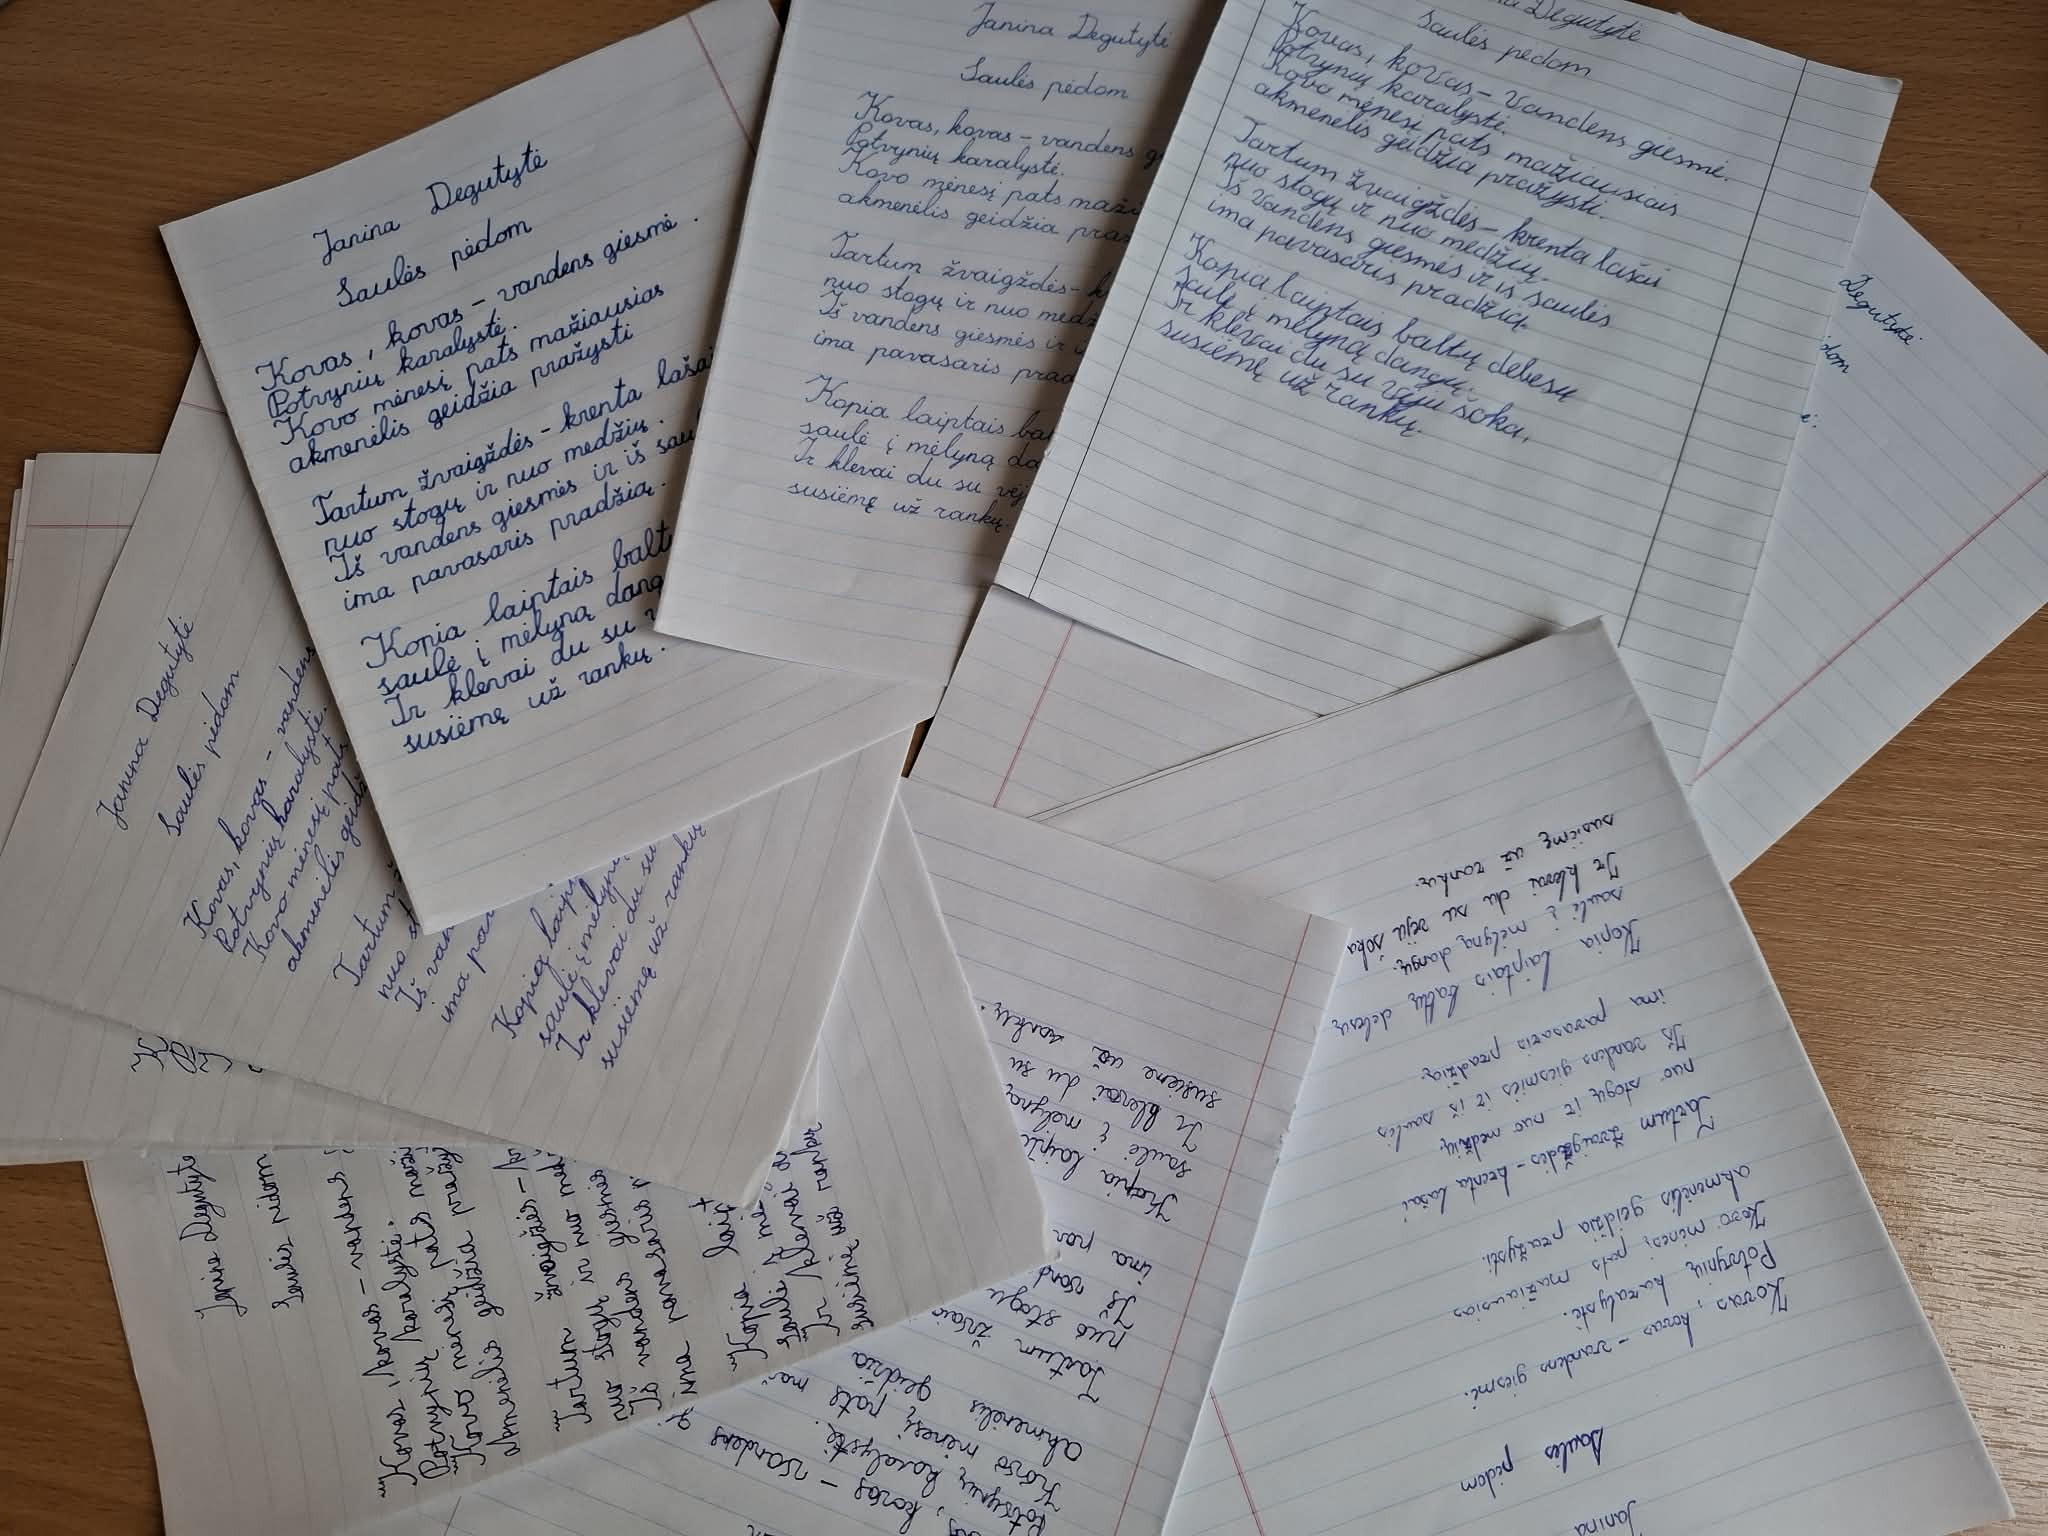 Janina Degutytė
Saulės pėdom
Kovas, kovas - vandens giesmė.
Potvynių karalystė.
Kovo mėnesį pats mažiausias
akmenėlis geidžia pražysti
Tartum žvaigždės - krenta lašai
nuo stogų ir nuo medžių.
Iš vandens giesmės ir iš
ima pavasaris pradžią.
Kopia laiptais
saulė į mėlyną
Ir klevai du su
susiėmę už rankų.
Janina Degutytė
Saulės pėdom
Kovas, kovas - vandens
Potvynių karalystė.
Kovo mėnesį pats
akmenėlis geidžia
Tartum žvaigždės -
nuo stogų ir nuo
Iš vandens giesmės ir
ima pavasaris
Kopia laiptais
saulė į mėlyną
Ir klevai du su
susiėmę už rankų.
Degutytė
Saulės pėdom
Kovas, kovas - vandens giesmė.
Potvynių karalystė.
Kovo mėnesį pats mažiausias
akmenėlis geidžia pražysti.
Tartum žvaigždės - krenta lašai
nuo stogų ir nuo medžių.
Iš vandens giesmės ir iš saulės
ima pavasaris pradžią.
Kopia laiptais baltų debesų
saulė į mėlyną dangų.
Ir klevai du su vėju šoka,
susiėmę už rankų.
Degutytė
Janina Degutytė
Saulės pėdom
Kovas, kovas - vandens
Potvynių karalystė.
Kovo mėnesį pats
akmenėlis
Tartum
nuo
Iš
ima
Kopia
saulė į
Ir klevai du su
susiėmę už rankų
Saulės pėdom
Kovas, kovas - vandens
Potvynių karalystė.
Kovo mėnesį pats
akmenėlis geidžia
Tartum
nuo stogų ir nuo
Iš vandens giesmės
ima pavasaris
Kopia
saulė
Ir klevai
susiėmę už
kovas - vandens
Potvynių karalystė.
Kovo mėnesį pats
akmenėlis geidžia
Tartum
nuo stogų
Iš
ima
Kopia
saulė į mėlyną
Ir klevai du su
susiėmę už rankų.
Janina
Saulės pėdom
Kovas, kovas - vandens giesmė.
Potvynių karalystė.
Kovo mėnesį pats mažiausias
akmenėlis geidžia pražysti.
Tartum žvaigždės - krenta lašai
nuo stogų ir nuo medžių.
Iš vandens giesmės ir iš saulės
ima pavasaris pradžią.
Kopia laiptais baltų debesų
saulė į mėlyną dangų.
Ir klevai du su vėju šoka
susiėmę už rankų.